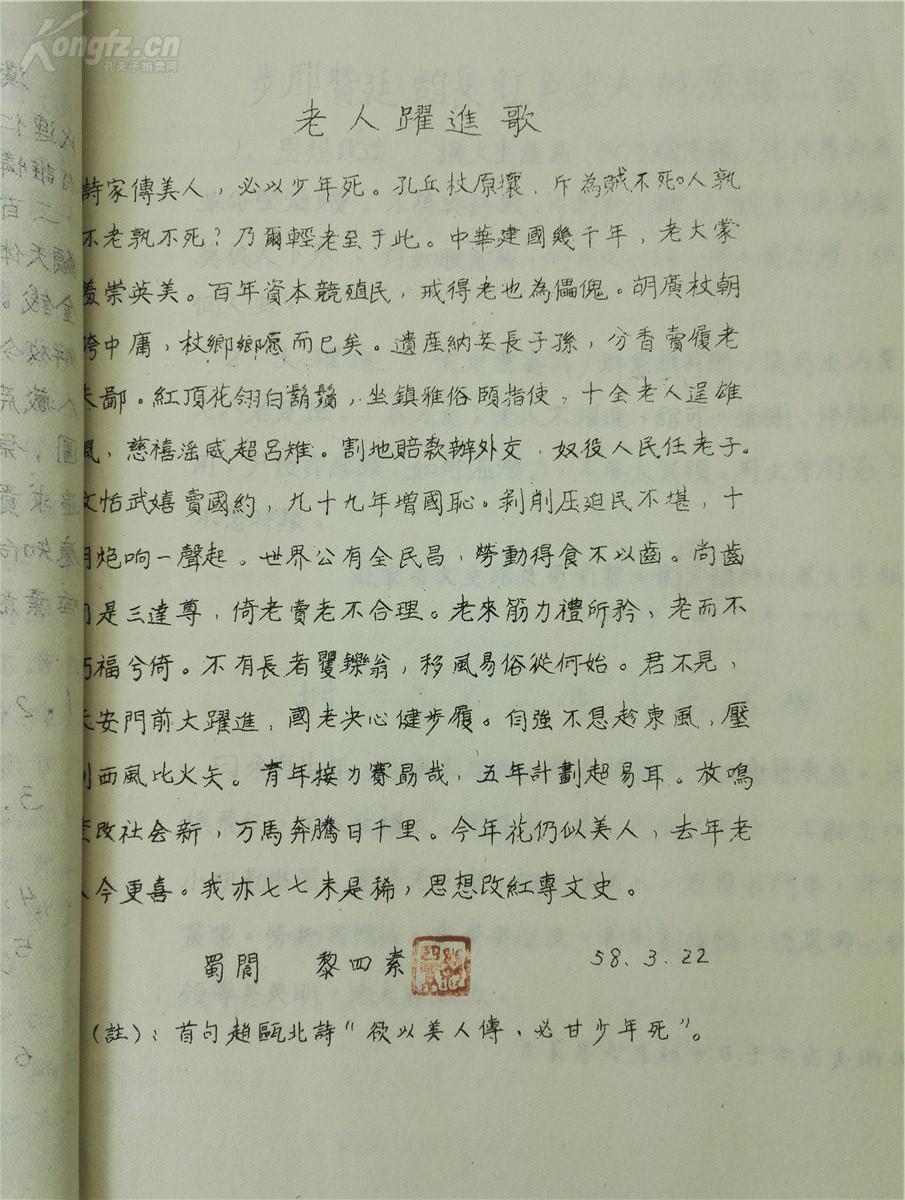 Kongfz.cn
孔夫子拍卖网
老人躍進歌
詩家傳美人，必以少年死。孔丘杖原壤，斥為賊不死。人孰
不老孰不死？乃爾輕老至于此。中華建國幾千年，老大蒙
羞崇英美。百年資本競殖民，戒得老也為儡傀。胡廣杖朝
誇中庸，杖鄉鄉愿而已矣。遺産納妾長子孫，分香賣履老
夫鄙。紅頂花翎白鬍鬚，坐鎮雅俗頤指使，十全老人逞雄
風，慈禧淫威超呂雉。割地賠款辦外交，奴役人民任老子。
文恬武嬉賣國約，九十九年增國恥。剝削压迫民不堪，十
月炮响一聲起。世界公有全民昌，勞動得食不以齒。尚齒
同是三達尊，倚老賣老不合理。老來筋力禮所矜，老而不
朽福兮倚。不有長者矍鑠翁，移風易俗從何始。君不見，
天安門前大躍進，國老决心健步履。自強不息趁東風，壓
到西風比火矢。青年接力賽勗哉，五年計劃超易耳。放鳴
整改社会新，万馬奔騰日千里。今年花仍似美人，去年老
人今更喜。我亦七七未是稀，思想改紅專文史。
蜀閬 黎四素 58.3.22
（註）：首句趙甌北詩“欲以美人傳，必甘少年死”。